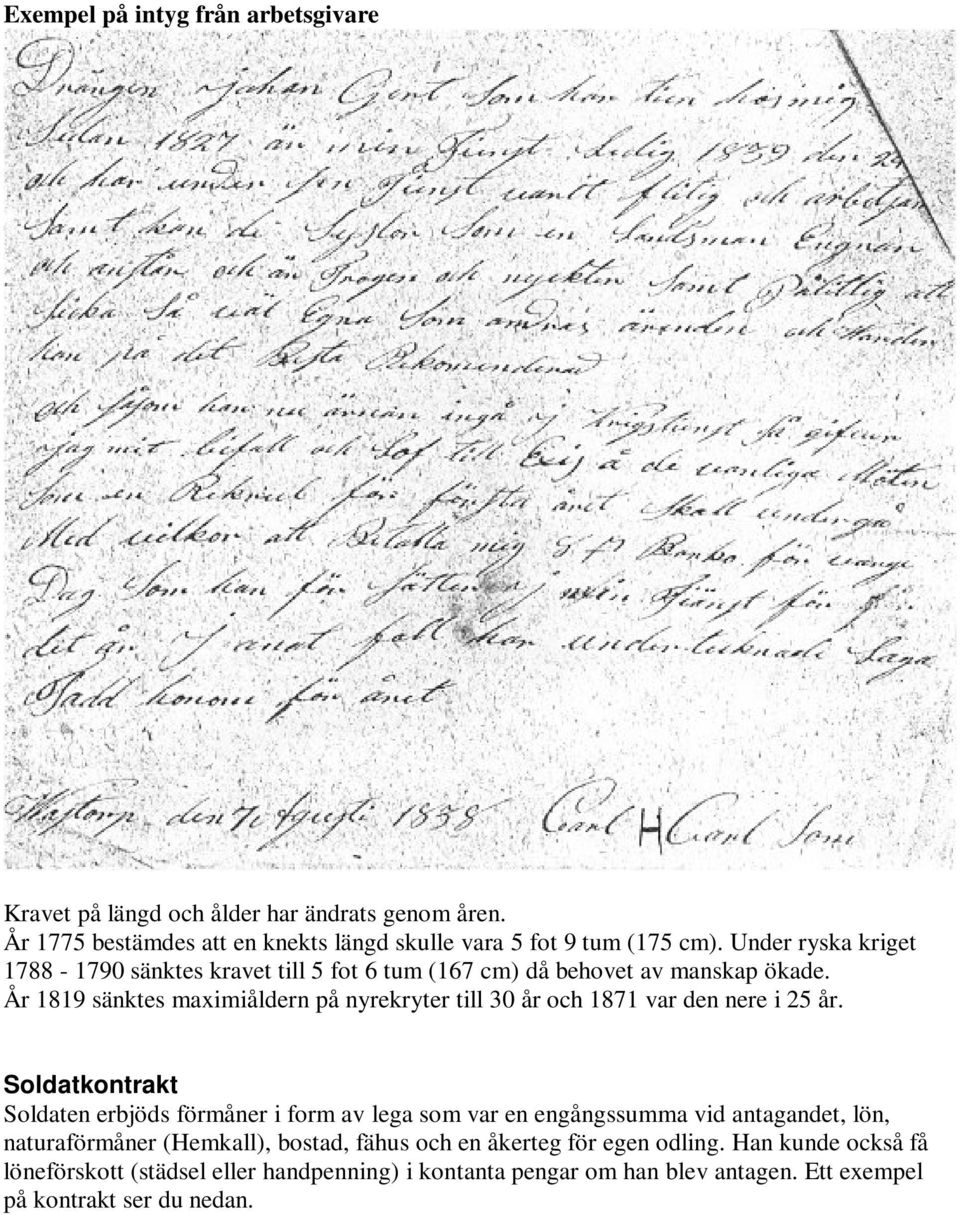 Exempel på intyg från arbetsgivare
Drängen Johan Gert som har tien hos mig
Sedan 1827 är min Tienst Ledig 1839 den 24
och har under sen Tienst varitt flitig och arbetsam
Samt kan de Syslor Som en Landsman Egnar
och anstår och är Trogen och nyckter Samt Pålitlig att
sicka Så väl Egna Som andras ärender och Handen
kan på det Besta Rekomenderas
och såsom han nu ärnar ingå i krigstienst så gifver
jag mit bifall och Lof till Exis å de vanliga Möten
Som en Rekrut för första året Skall undergå
Med vilkor att Betalla mig Banko för varge
Dag Som han för sätter i min Tjänst för
det år I anat fall har undertecknade Laga
Stadd honom för året
den 7 Agusti 1838 Carl H Carl Son
Kravet på längd och ålder har ändrats genom åren.
År 1775 bestämdes att en knekts längd skulle vara 5 fot 9 tum (175 cm). Under ryska kriget
1788 - 1790 sänktes kravet till 5 fot 6 tum (167 cm) då behovet av manskap ökade.
År 1819 sänktes maximiåldern på nyrekryter till 30 år och 1871 var den nere i 25 år.
Soldatkontrakt
Soldaten erbjöds förmåner i form av lega som var en engångssumma vid antagandet, lön,
naturaförmåner (Hemkall), bostad, fähus och en åkerteg för egen odling. Han kunde också få
löneförskott (städsel eller handpenning) i kontanta pengar om han blev antagen. Ett exempel
på kontrakt ser du nedan.